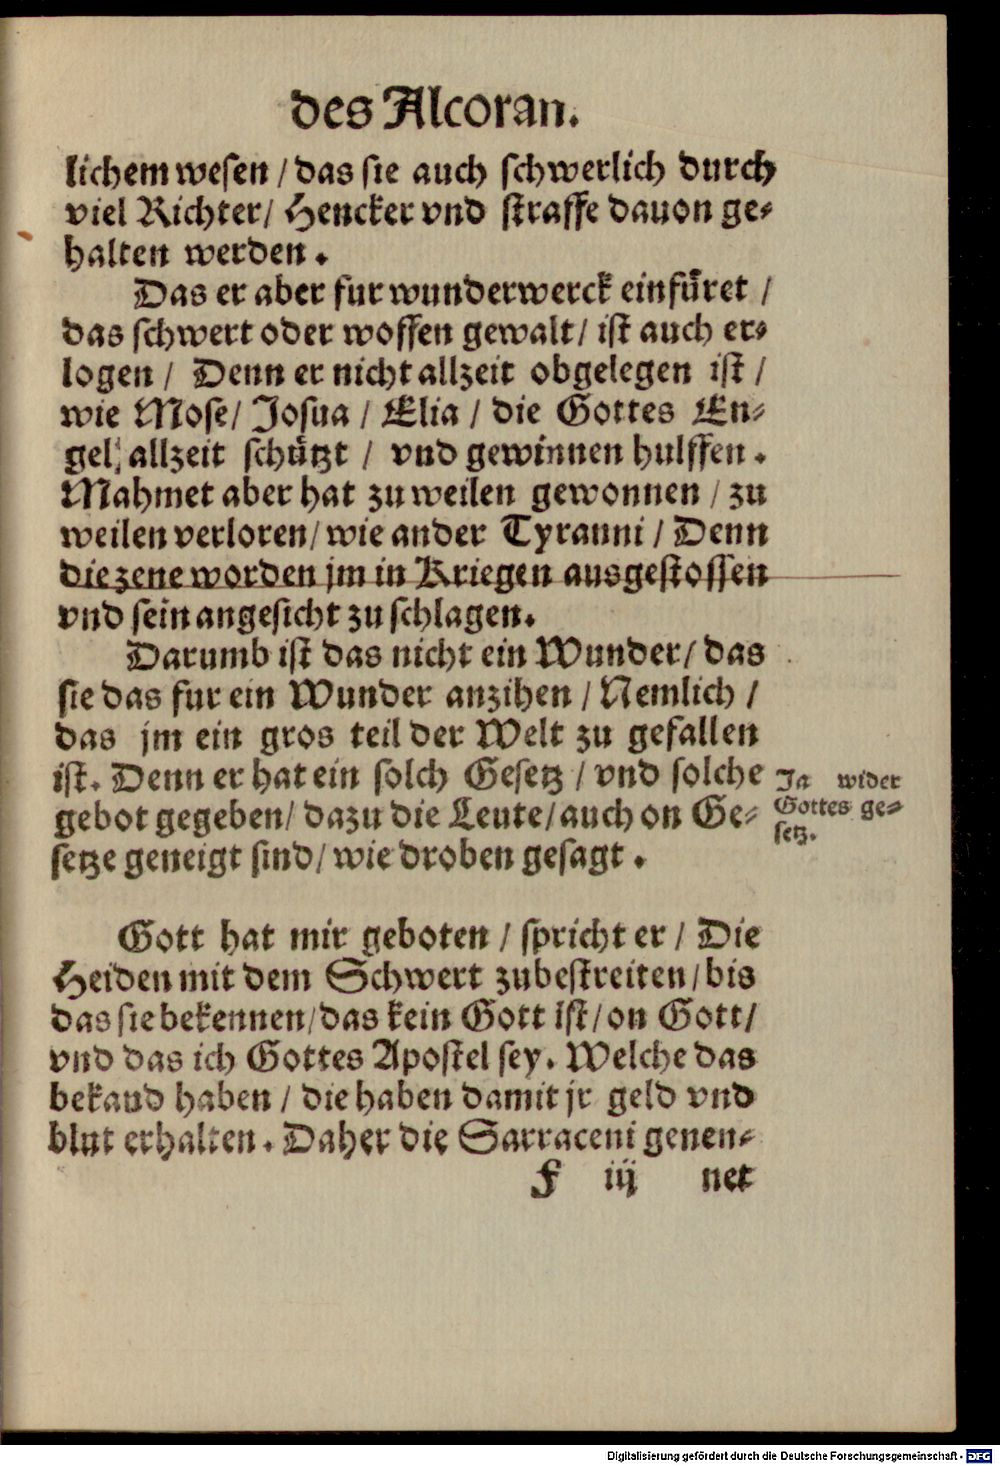 des Alcoran.
lichem wesen / das sie auch schwerlich durch
viel Richter/ Hencker vnd straffe dauon ge-
halten werden.
Das er aber fur wunderwerck einfüret /
das schwert oder woffen gewalt/ ist auch er-
logen / Denn er nicht allzeit obgelegen ist /
wie Mose/ Josua / Elia / die Gottes En-
gel, allzeit schützt / vnd gewinnen hulffen.
Mahmet aber hat zu weilen gewonnen / zu
weilen verloren/ wie ander Tyranni / Denn
die zene worden jm in Kriegen ausgestossen
vnd sein angesicht zu schlagen.
Darumb ist das nicht ein Wunder/ das
sie das fur ein Wunder anzihen / Nemlich /
das jm ein gros teil der Welt zu gefallen
ist. Denn er hat ein solch Gesetz / vnd solche
gebot gegeben/ dazu die Leute/ auch on Ge-
setze geneigt sind/ wie droben gesagt.
Ja wider
Gottes ge-
setz.
Gott hat mir geboten / spricht er / Die
Heiden mit dem Schwert zubestreiten/ bis
das sie bekennen/ das kein Gott ist/ on Gott/
vnd das ich Gottes Apostel sey. Welche das
bekand haben / die haben damit jr geld vnd
blut erhalten. Daher die Sarraceni genen-
F iij net
Digitalisierung gefördert durch die Deutsche Forschungsgemeinschaft - DFG